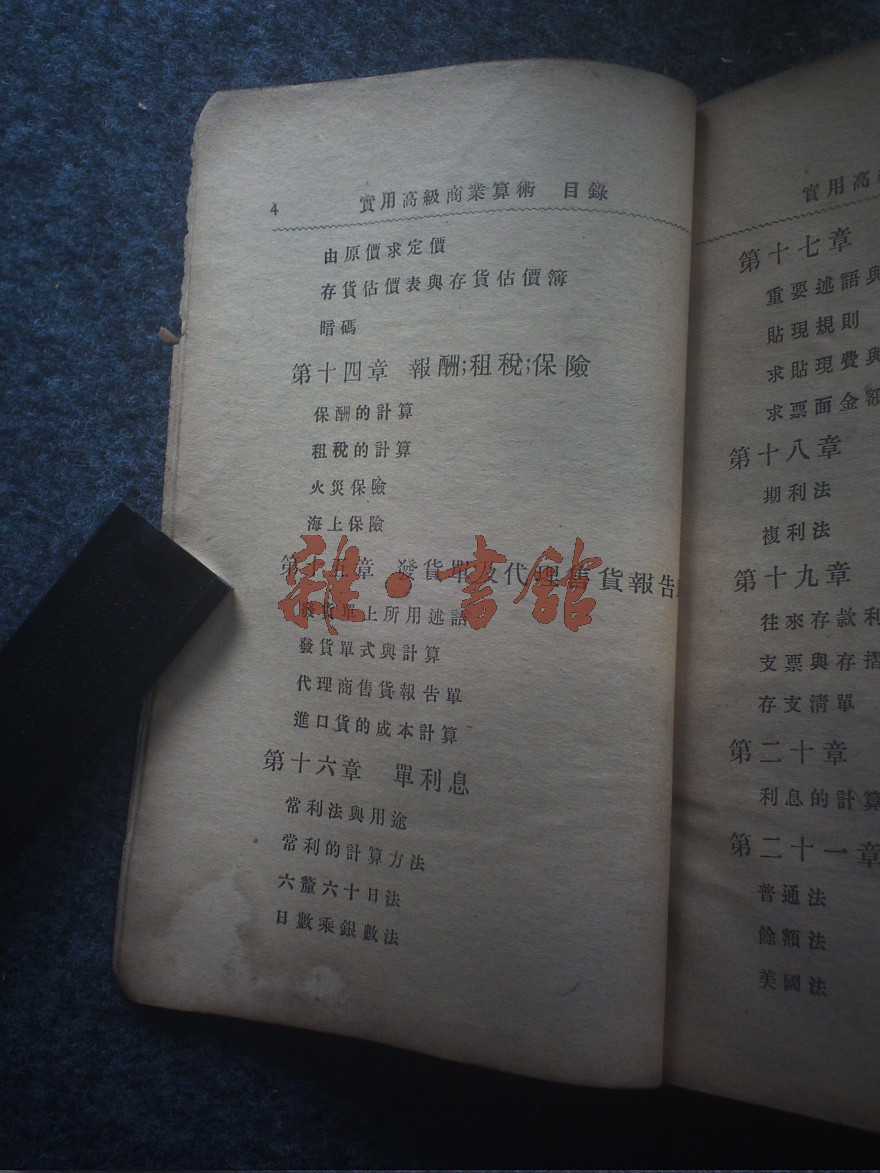 4 實用高級商業算術 目錄
由原價求定價
存貨估價表與存貨估價簿
暗碼
第十四章 報酬;租稅;保險
保酬的計算
租稅的計算
火災保險
海上保險
第十五章 發貨單及代理售貨報告
發貨單上所用述語
發貨單式與計算
代理商售貨報告單
進口貨的成本計算
第十六章 單利息
常利法與用途
常利的計算方法
六釐六十日法
日數乘銀數法
實用高
第十七章
重要述語與
貼現規則
求貼現費與
求票面金額
第十八章
期利法
複利法
第十九章
往來存款利
支票與存摺
存支清單
第二十章
利息的計算
第二十一章
普通法
餘額法
美國法
雜·書館